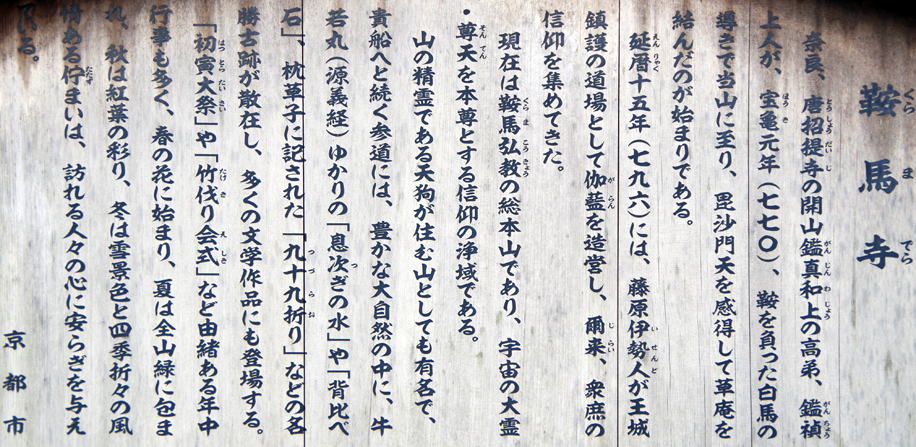 鞍馬寺
奈良、唐招提寺の開山鑑真和上の高弟、鑑禎
上人が、宝亀元年（七七〇）、鞍を負った白馬の
導きで当山に至り、毘沙門天を感得して草庵を
結んだのが始まりである。
延暦十五年（七九六）には、藤原伊勢人が王城
鎮護の道場として伽藍を造営し、爾来、衆庶の
信仰を集めてきた。
現在は鞍馬弘教の総本山であり、宇宙の大霊
・尊天を本尊とする信仰の浄域である。
山の精霊である天狗が住む山としても有名で、
貴船へと続く参道には、豊かな大自然の中に、牛
若丸（源義経）ゆかりの「息次ぎの水」や「背比べ
石」、枕草子に記された「九十九折り」などの名
勝古跡が散在し、多くの文学作品にも登場する。
「初寅大祭」や「竹伐り会式」など由緒ある年中
行事も多く、春の花に始まり、夏は全山緑に包ま
れ、秋は紅葉の彩り、冬は雪景色と四季折々の風
情ある佇まいは、訪れる人々の心に安らぎを与え
ている。
京都市